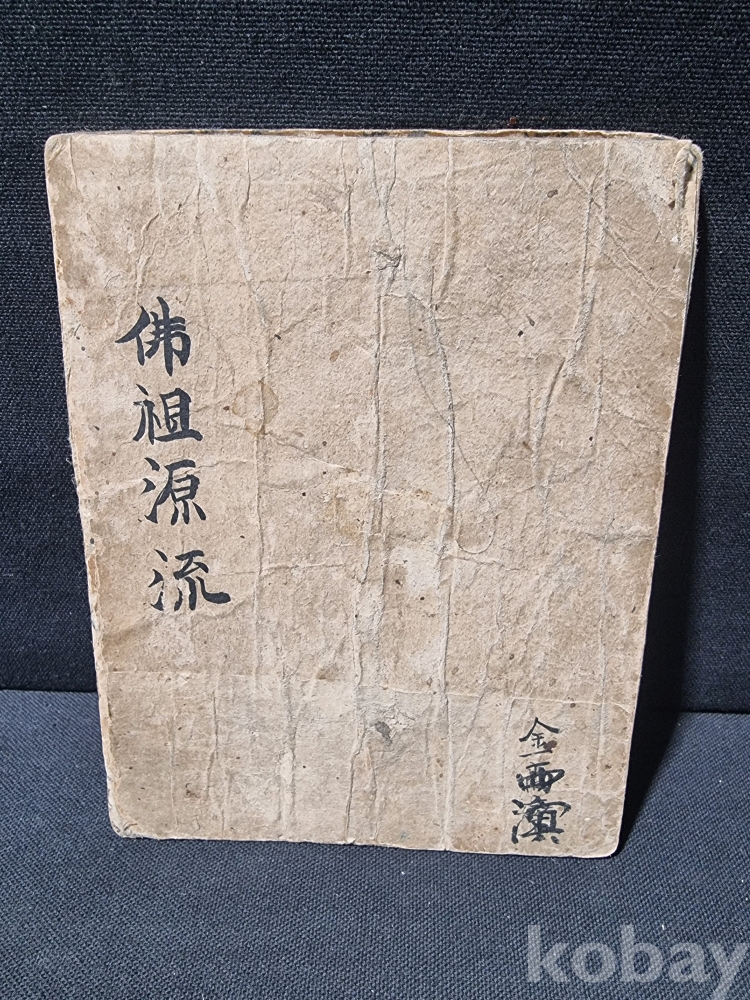 佛祖源流
金西濵
kobay